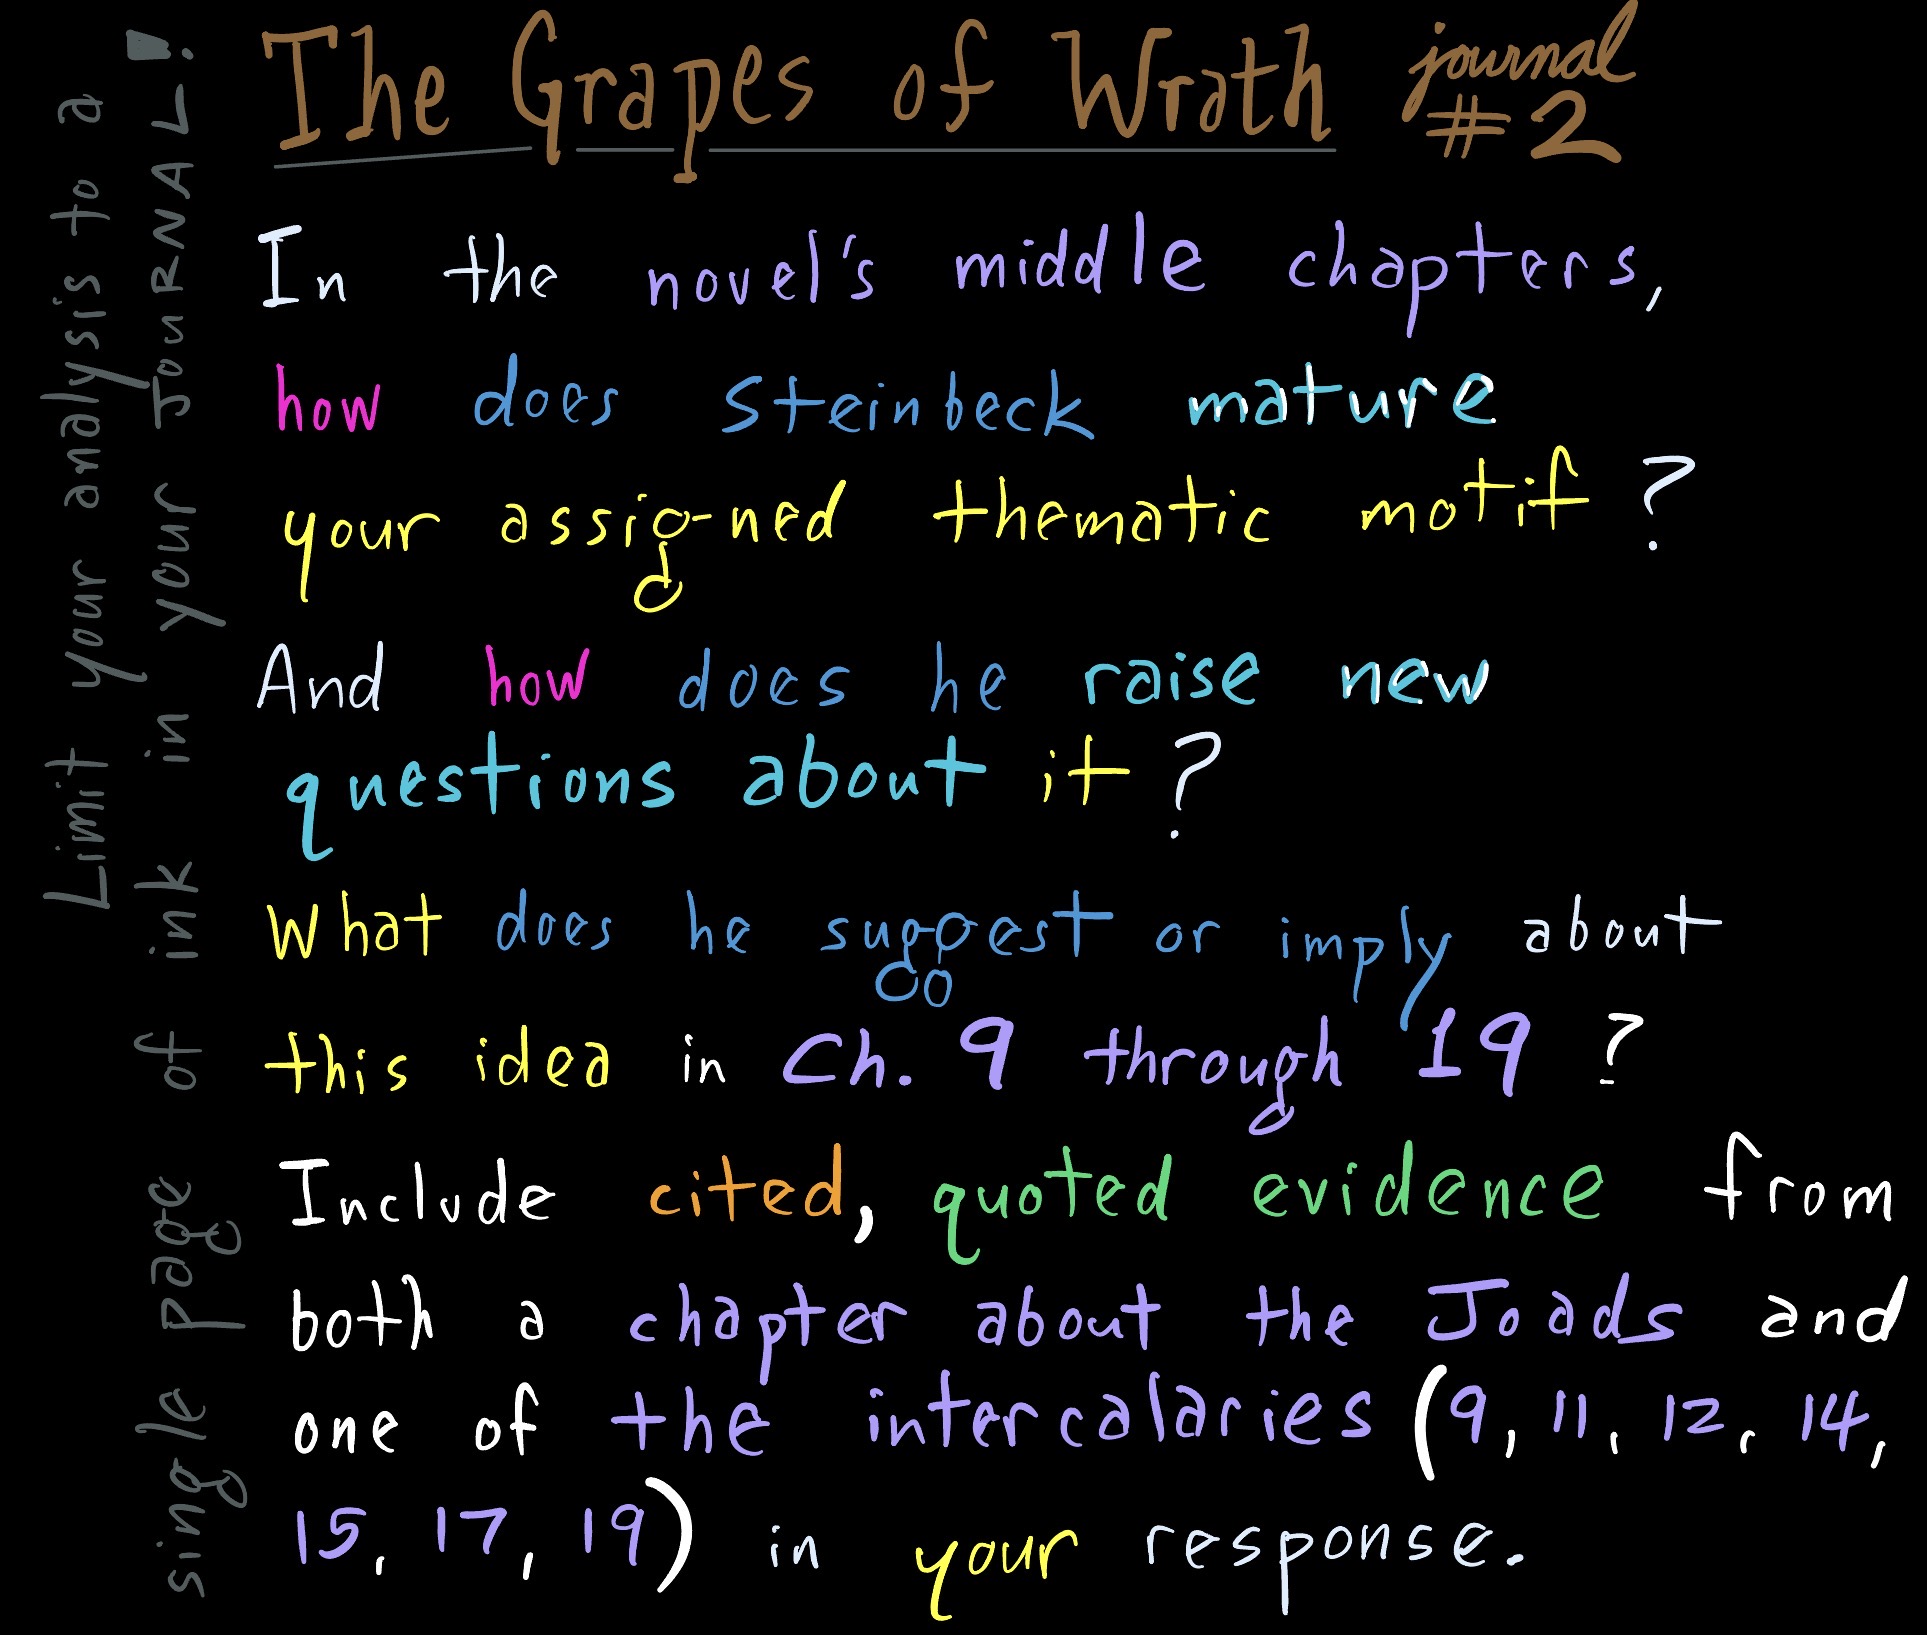 The Grapes of Wrath journal #2
In the novel's middle chapters,
how does Steinbeck mature
your assigned thematic motif?
And how does he raise new
questions about it?
What does he suggest or imply about
this idea in Ch. 9 through 19?
Include cited, quoted evidence from
both a chapter about the Joads and
one of the intercalaries (9, 11, 12, 14,
15, 17, 19) in your response.
Limit your analysis to a
single page of ink in your JOURNAL!